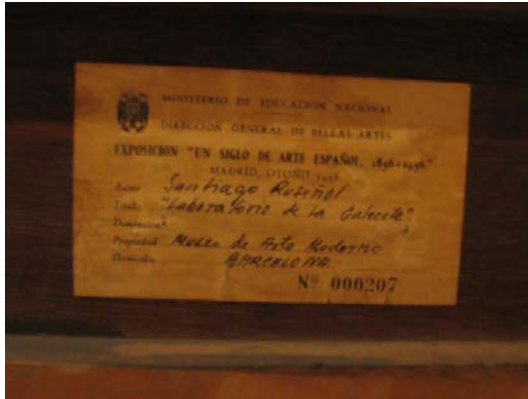 MINISTERIO DE EDUCACION NACIONAL
DIRECCION GENERAL DE BELLAS ARTES
EXPOSICION "UN SIGLO DE ARTE ESPAÑOL, 1856-1956"
MADRID, OTOÑO 1956
Autor Santiago Rusiñol
Título "Laboratorio de la Galette"
Dimensiones
Propiedad Museo de Arte Moderno
Domicilio BARCELONA
Nº 000207